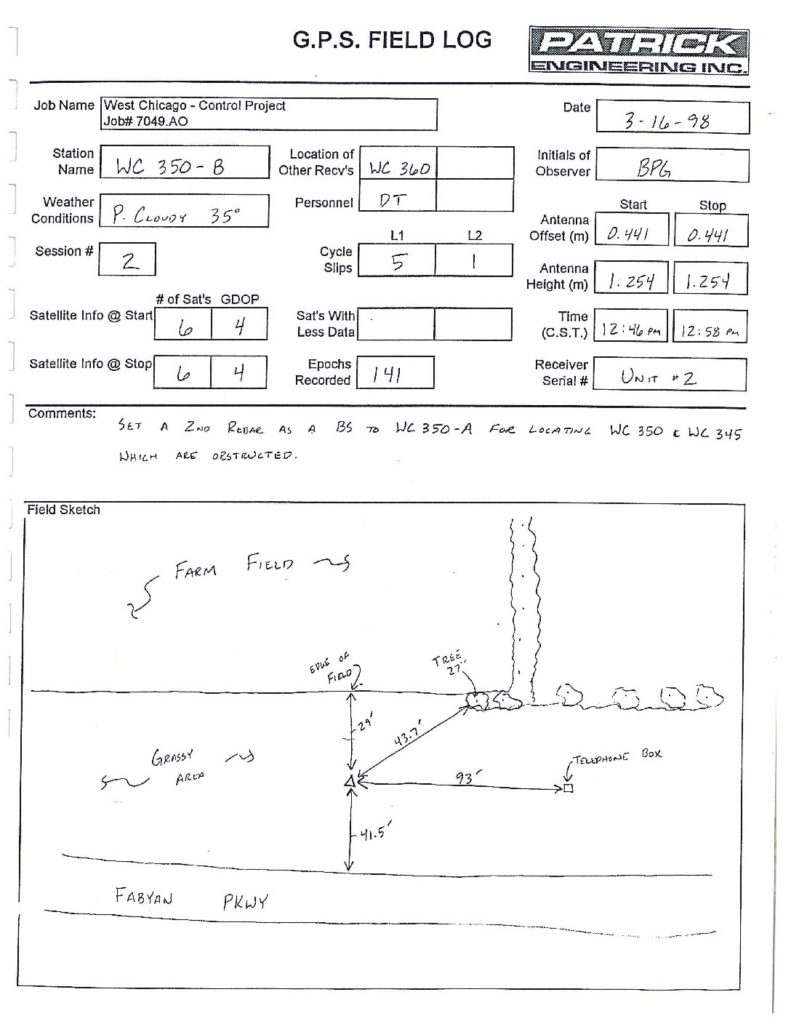 G.P.S. FIELD LOG
PATRICK
ENGINEERING INC.
Job Name West Chicago - Control Project
Job# 7049.AO
Date 3-16-98
Station Name WC 350-B
Location of Other Recv's WC 360
Initials of Observer BPG
Weather Conditions P. CLOUDY 35°
Personnel DT
Start Stop
Antenna Offset (m) 0.441 0.441
Session # 2
L1 L2
Cycle Slips 5 1
Antenna Height (m) 1.254 1.254
# of Sat's GDOP
Satellite Info @ Start 6 4
Sat's With Less Data
Time (C.S.T.) 12:46 PM 12:58 PM
Satellite Info @ Stop 6 4
Epochs Recorded 141
Receiver Serial # UNIT #2
Comments:
SET A 2ND REBAR AS A BS TO WC 350-A FOR LOCATING WC 350 & WC 345
WHICH ARE OBSTRUCTED.
Field Sketch
FARM FIELD
EDGE OF
FIELD
TREE
27"
29'
43.7'
GRASSY
AREA
93'
TELEPHONE BOX
41.5'
FABYAN PKWY